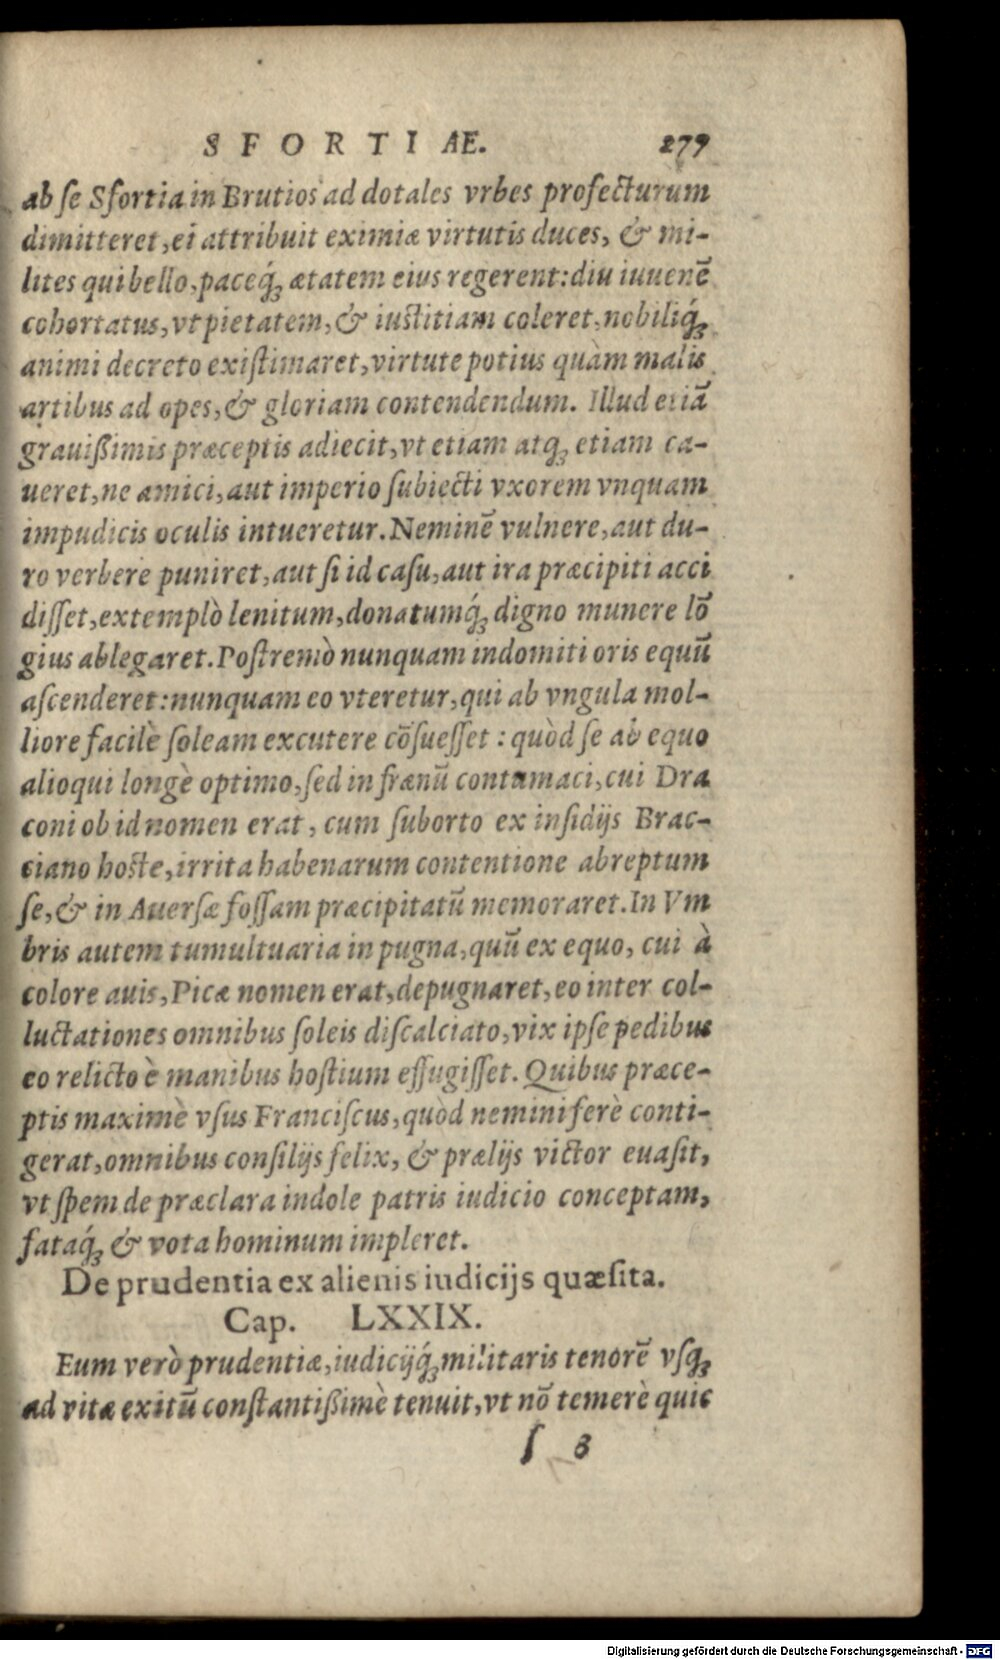 SFORTIAE. 279
ab ſe Sfortia in Brutios ad dotales vrbes profecturum
dimitteret, ei attribuit eximiæ virtutis duces, & mi-
lites qui bello, paceq́ꝫ ætatem eius regerent: diu iuuenē
cohortatus, vt pietatem, & iuſtitiam coleret, nobiliq́ꝫ
animi decreto exiſtimaret, virtute potius quàm malis
artibus ad opes, & gloriam contendendum. Illud etiã
grauißimis præceptis adiecit, vt etiam atqꝫ etiam ca-
ueret, ne amici, aut imperio ſubiecti vxorem vnquam
impudicis oculis intueretur. Neminē vulnere, aut du-
ro verbere puniret, aut ſi id caſu, aut ira præcipiti acci
diſſet, extemplò lenitum, donatumq́ꝫ digno munere lō
gius ablegaret. Poſtremò nunquam indomiti oris equū
aſcenderet: nunquam eo vteretur, qui ab vngula mol-
liore facilè ſoleam excutere cōſueſſet: quòd ſe ab equo
alioqui longè optimo, ſed in frænū contumaci, cui Dra
coni ob id nomen erat, cum ſuborto ex inſidijs Brac-
ciano hoſte, irrita habenarum contentione abreptum
ſe, & in Auerſæ foſſam præcipitatū memoraret. In Vm
bris autem tumultuaria in pugna, quū ex equo, cui à
colore auis, Picæ nomen erat, depugnaret, eo inter col-
luctationes omnibus ſoleis diſcalciato, vix ipſe pedibus
eo relicto è manibus hoſtium effugiſſet. Quibus præce-
ptis maximè vſus Franciſcus, quòd nemini ferè conti-
gerat, omnibus conſilijs felix, & prælijs victor euaſit,
vt ſpem de præclara indole patris iudicio conceptam,
fataq́ꝫ & vota hominum impleret.
De prudentia ex alienis iudicijs quæſita.
Cap. LXXIX.
Eum verò prudentiæ, iudicijq́ꝫ militaris tenorē vſqꝫ
ad vitæ exitū conſtantißimè tenuit, vt nō temerè quic
ſ 3
Digitalisierung gefördert durch die Deutsche Forschungsgemeinschaft - DFG